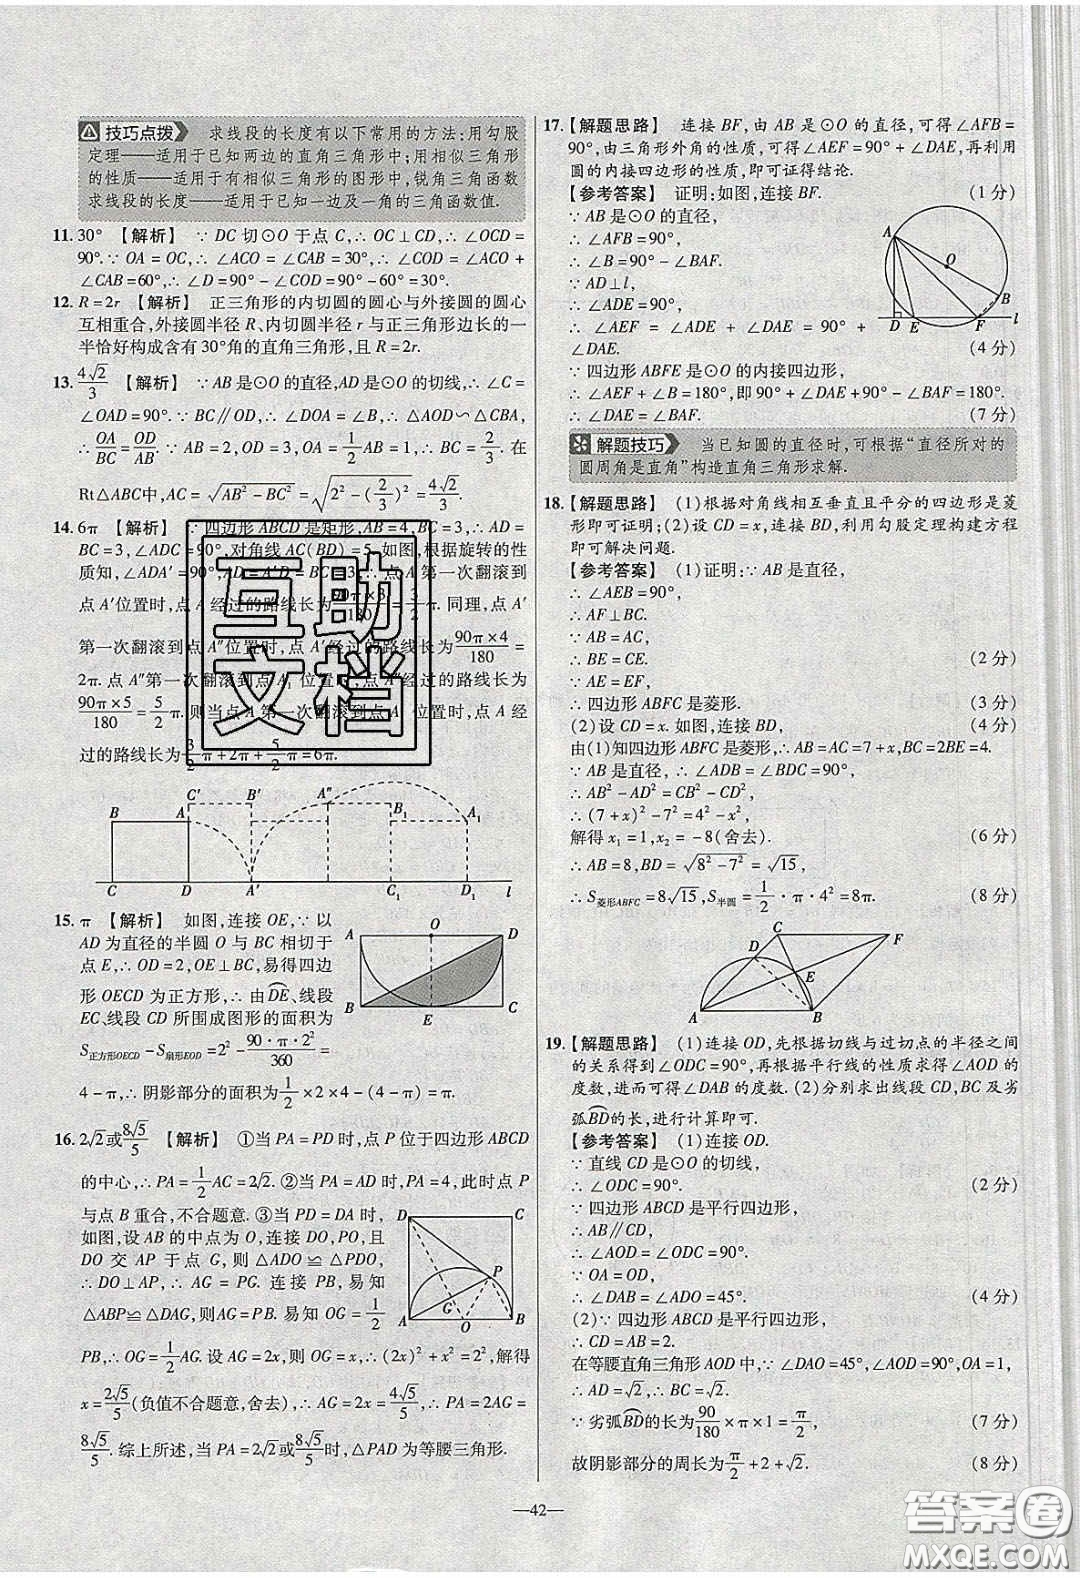 技巧点拨 求线段的长度有以下常用的方法:用勾股
定理——适用于已知两边的直角三角形中;用相似三角形
的性质——适用于有相似三角形的图形中,锐角三角函数
求线段的长度——适用于已知一边及一角的三角函数值.
11. 30° 【解析】 ∵ DC 切⊙O 于点 C,∴ OC⊥CD,∴ ∠OCD =
90°. ∵ OA = OC,∴ ∠ACO = ∠CAB = 30°,∴ ∠COD = ∠ACO +
∠CAB = 60°,∴ ∠D = 90° - ∠COD = 90° - 60° = 30°.
12. R = 2r 【解析】 正三角形的内切圆的圆心与外接圆的圆心
互相重合,外接圆半径 R、内切圆半径 r 与正三角形边长的一
半恰好构成含有30°角的直角三角形,且 R = 2r.
13. 4√2/3 【解析】 ∵ AB 是⊙O 的直径,AD 是⊙O 的切线,∴ ∠C =
∠OAD = 90°. ∵ BC∥OD,∴ ∠DOA = ∠B,∴ △AOD∽△CBA,
∴ OA/BC = OD/AB. ∵ AB = 2,OD = 3,∴ OA = 1/2 AB = 1,∴ BC = 2/3. 在
Rt△ABC中,AC = √(AB² - BC²) = √(2² - (2/3)²) = 4√2/3.
14. 6π 【解析】 ∵ 四边形 ABCD 是矩形,AB = 4,BC = 3,∴ AD =
BC = 3,∠ADC = 90°,对角线 AC(BD) = 5. 如图,根据旋转的性
质知,∠ADA′ = 90°,AD = A′D = BC = 3,∴ 点 A 第一次翻滚到
点 A′位置时,点 A 经过的路线长为 90π×3/180 = 3/2 π. 同理,点 A′
第一次翻滚到点 A″位置时,点 A′经过的路线长为 90π×4/180 =
2π. 点 A″第一次翻滚到点 A₁ 位置时,点 A″经过的路线长为
90π×5/180 = 5/2 π. 则当点 A 第一次翻滚到点 A₁ 位置时,点 A 经
过的路线长为 3/2 π + 2π + 5/2 π = 6π.
C′ B′ A″
B A B₁
C D A′ C₁ D₁ l
15. π 【解析】 如图,连接 OE,∵ 以
AD 为直径的半圆 O 与 BC 相切于
点 E,∴ OD = 2,OE⊥BC,易得四边
形 OECD 为正方形,∴ 由DE、线段
EC、线段 CD 所围成图形的面积为
S正方形OECD - S扇形EOD = 2² - 90·π·2²/360 =
4 - π,∴ 阴影部分的面积为 1/2 × 2 × 4 - (4 - π) = π.
A O D
B E C
16. 2√2或8√5/5 【解析】 ①当 PA = PD 时,点 P 位于四边形 ABCD
的中心,∴ PA = 1/2 AC = 2√2. ②当 PA = AD 时,PA = 4,此时点 P
与点 B 重合,不合题意. ③当 PD = DA 时,
如图,设 AB 的中点为 O,连接 DO,PO,且
DO 交 AP 于点 G,则 △ADO ≌ △PDO,
∴ DO⊥AP,∴ AG = PG. 连接 PB,易知
△ABP≌△DAG,则AG = PB. 易知 OG = 1/2
PB,∴ OG = 1/2 AG. 设 AG = 2x,则 OG = x,∴ (2x)² + x² = 2²,解得
x = 2√5/5 (负值不合题意,舍去),∴ AG = 2x = 4√5/5,∴ PA = 2AG =
8√5/5. 综上所述,当 PA = 2√2或8√5/5时,△PAD 为等腰三角形.
D C
P
G
A O B
17. 【解题思路】 连接 BF,由 AB 是⊙O 的直径,可得∠AFB =
90°,由三角形外角的性质,可得∠AEF = 90° + ∠DAE,再利用
圆的内接四边形的性质,即可证得结论.
【参考答案】 证明:如图,连接 BF. (1 分)
∵ AB 是⊙O 的直径,
∴ ∠AFB = 90°,
∴ ∠B = 90° - ∠BAF.
∵ AD⊥l,
∴ ∠ADE = 90°,
∴ ∠AEF = ∠ADE + ∠DAE = 90° +
∠DAE. (4 分)
∵ 四边形 ABFE 是⊙O 的内接四边形,
∴ ∠AEF + ∠B = 180°,即 90° + ∠DAE + 90° - ∠BAF = 180°.
∴ ∠DAE = ∠BAF. (7 分)
A
O
B
D E F l
解题技巧 当已知圆的直径时,可根据“直径所对的
圆周角是直角”构造直角三角形求解.
18. 【解题思路】 (1)根据对角线相互垂直且平分的四边形是菱
形即可证明;(2)设 CD = x,连接 BD,利用勾股定理构建方程
即可解决问题.
【参考答案】 (1)证明:∵ AB 是直径,
∴ ∠AEB = 90°,
∴ AF⊥BC.
∵ AB = AC,
∴ BE = CE. (2 分)
∵ AE = EF,
∴ 四边形 ABFC 是菱形. (3 分)
(2)设 CD = x. 如图,连接 BD, (4 分)
由(1)知四边形 ABFC 是菱形,∴ AB = AC = 7 + x,BC = 2BE = 4.
∵ AB 是直径,∴ ∠ADB = ∠BDC = 90°,
∴ AB² - AD² = CB² - CD²,
∴ (7 + x)² - 7² = 4² - x²,
解得 x₁ = 1,x₂ = -8(舍去). (6 分)
∴ AB = 8,BD = √(8² - 7²) = √15,
∴ S菱形ABFC = 8√15,S半圆 = 1/2 · π · 4² = 8π. (8 分)
C F
D
E
A B
19. 【解题思路】 (1)连接 OD,先根据切线与过切点的半径之间
的关系得到∠ODC = 90°,再根据平行线的性质求得∠AOD 的
度数,进而可得∠DAB 的度数. (2)分别求出线段 CD,BC 及劣
弧BD的长,进行计算即可.
【参考答案】 (1)连接 OD.
∵ 直线 CD 是⊙O 的切线,
∴ ∠ODC = 90°. (2 分)
∵ 四边形 ABCD 是平行四边形,
∴ AB∥CD,
∴ ∠AOD = ∠ODC = 90°.
∵ OA = OD,
∴ ∠DAB = ∠ADO = 45°. (4 分)
(2)∵ 四边形 ABCD 是平行四边形,
∴ CD = AB = 2.
在等腰直角三角形 AOD 中,∵ ∠DAO = 45°,∠AOD = 90°,OA = 1,
∴ AD = √2,∴ BC = AD = √2.
∵ 劣弧BD的长为 90/180 × π × 1 = π/2, (7 分)
故阴影部分的周长为 π/2 + 2 + √2. (8 分)
—42—
互助
文档
答案圈
MXQE.COM